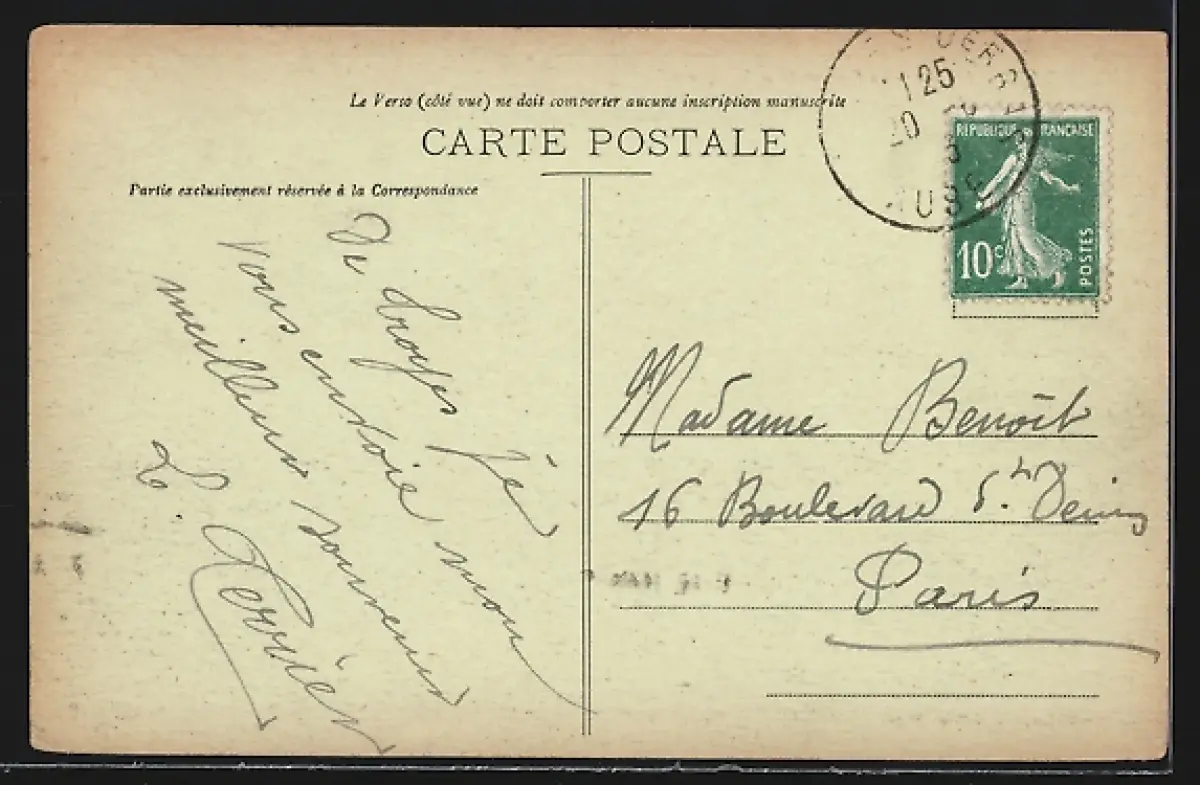 Le Verso (côté vue) ne doit comporter aucune inscription manuscrite
CARTE POSTALE
Partie exclusivement réservée à la Correspondance
De Troyes je
vous envoie mon
meilleur souvenir
L.
1125
20
AUBE
REPUBLIQUE FRANÇAISE
10c
POSTES
Madame Benoît
16 Boulevard St Denis
Paris